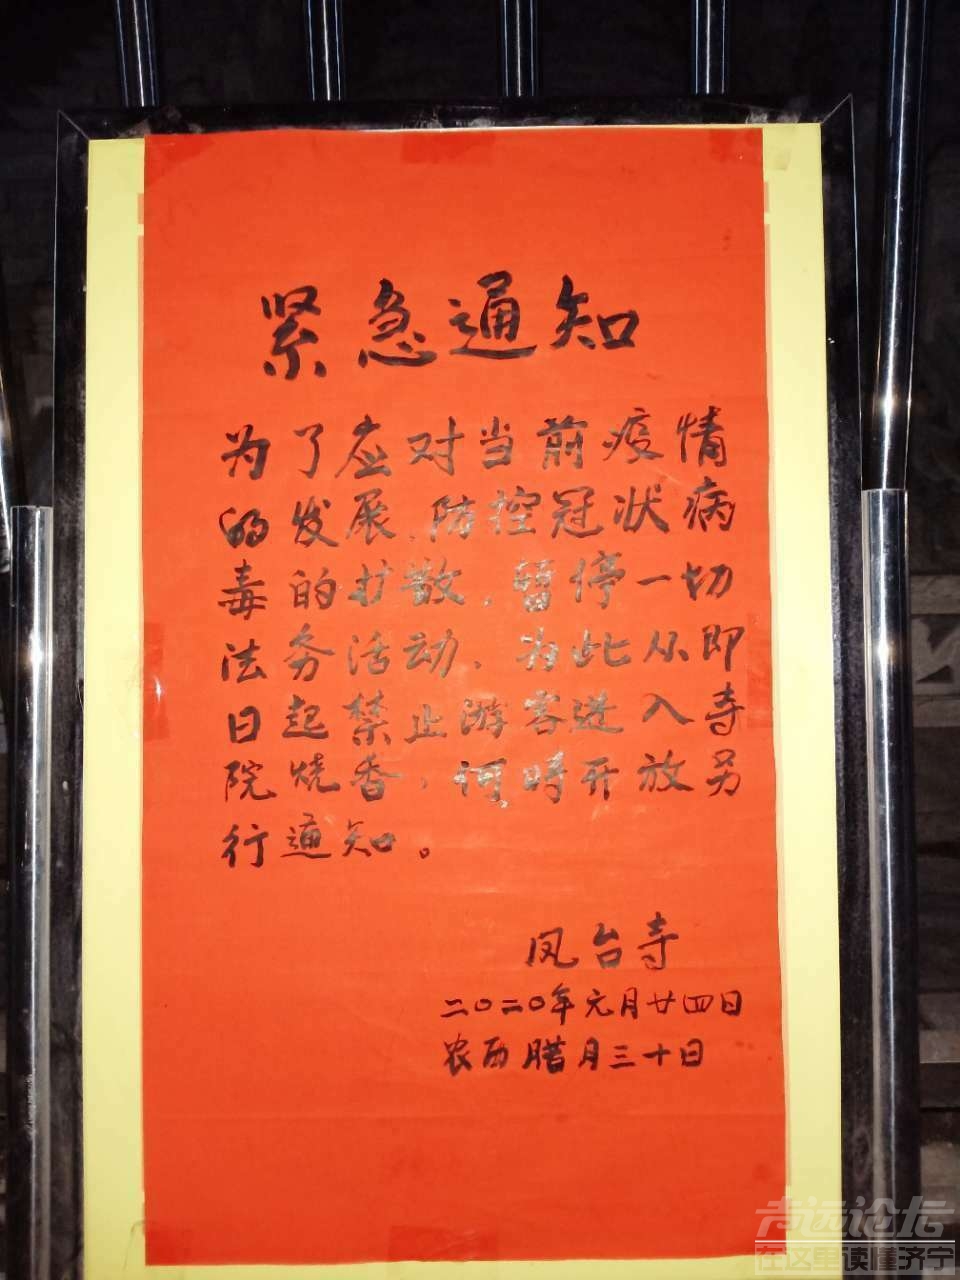 紧急通知
为了应对当前疫情
的发展、防控冠状病
毒的扩散，暂停一切
法务活动、为此从即
日起禁止游客进入寺
院烧香，何時开放另
行通知。
凤台寺
二〇二〇年元月廿四日
农历腊月三十日
志远论坛
在这里读懂济宁